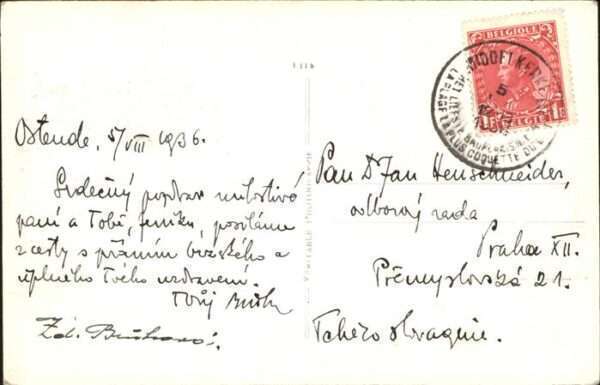 Ostende, 5/VIII 1936.
Srdečný pozdrav milostivé
paní a Tobě, posíláme
z cesty s přáním brzského a
úplného Tvého uzdravení.
Tvůj
Zd.
BELGIQUE
1F
BELGIË
MIDDELKERKE
5
HET LIEFSTE BADPLAATSJE
LA PLAGE LA PLUS COQUETTE DU
Pan Dr Jan Henschneider,
odborový rada
Praha XII.
Přemyslovská 21.
Tchécoslovaquie.